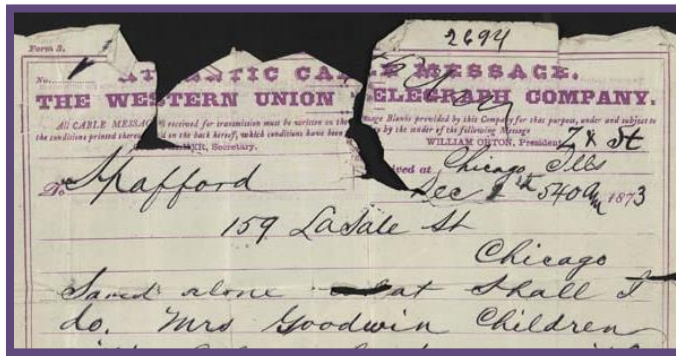 2694
Form 2.
No.
ATLANTIC CABLE MESSAGE.
THE WESTERN UNION TELEGRAPH COMPANY.
All CABLE MESSAGES received for transmission must be written on the Message Blanks provided by this Company for that purpose, under and subject to
the conditions printed thereon and on the back hereof, which conditions have been by the sender of the following Message
Secretary. WILLIAM ORTON, President.
St
Received at Chicago Ills
To Spafford Dec 540 am 1873
159 LaSale St
Chicago
Saved alone what shall I
do. Mrs Goodwin Children